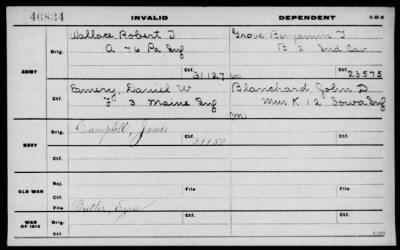 46834 INVALID DEPENDENT
Wallace, Robert J Grove Benjamin F
ARMY Orig. A 76 Pa Inf B 2 Ind Cav
31127 Ctf. 23575
Emery, Daniel W Blanchard, John D
Ctf. F 3 Maine Inf Mus K 12 Iowa Inf
m
Campbell, James
NAVY Orig. Ctf. 31150
Ctf.
OLD WAR Rej. Ctf. File File
Butler, Ezra
WAR OF 1812 Orig. Ctf. Ctf.